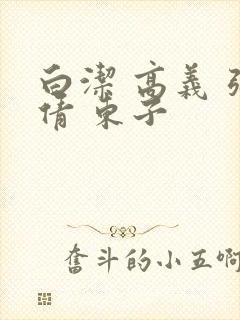 白潔 高義
倩 東子
奮斗的小五啊